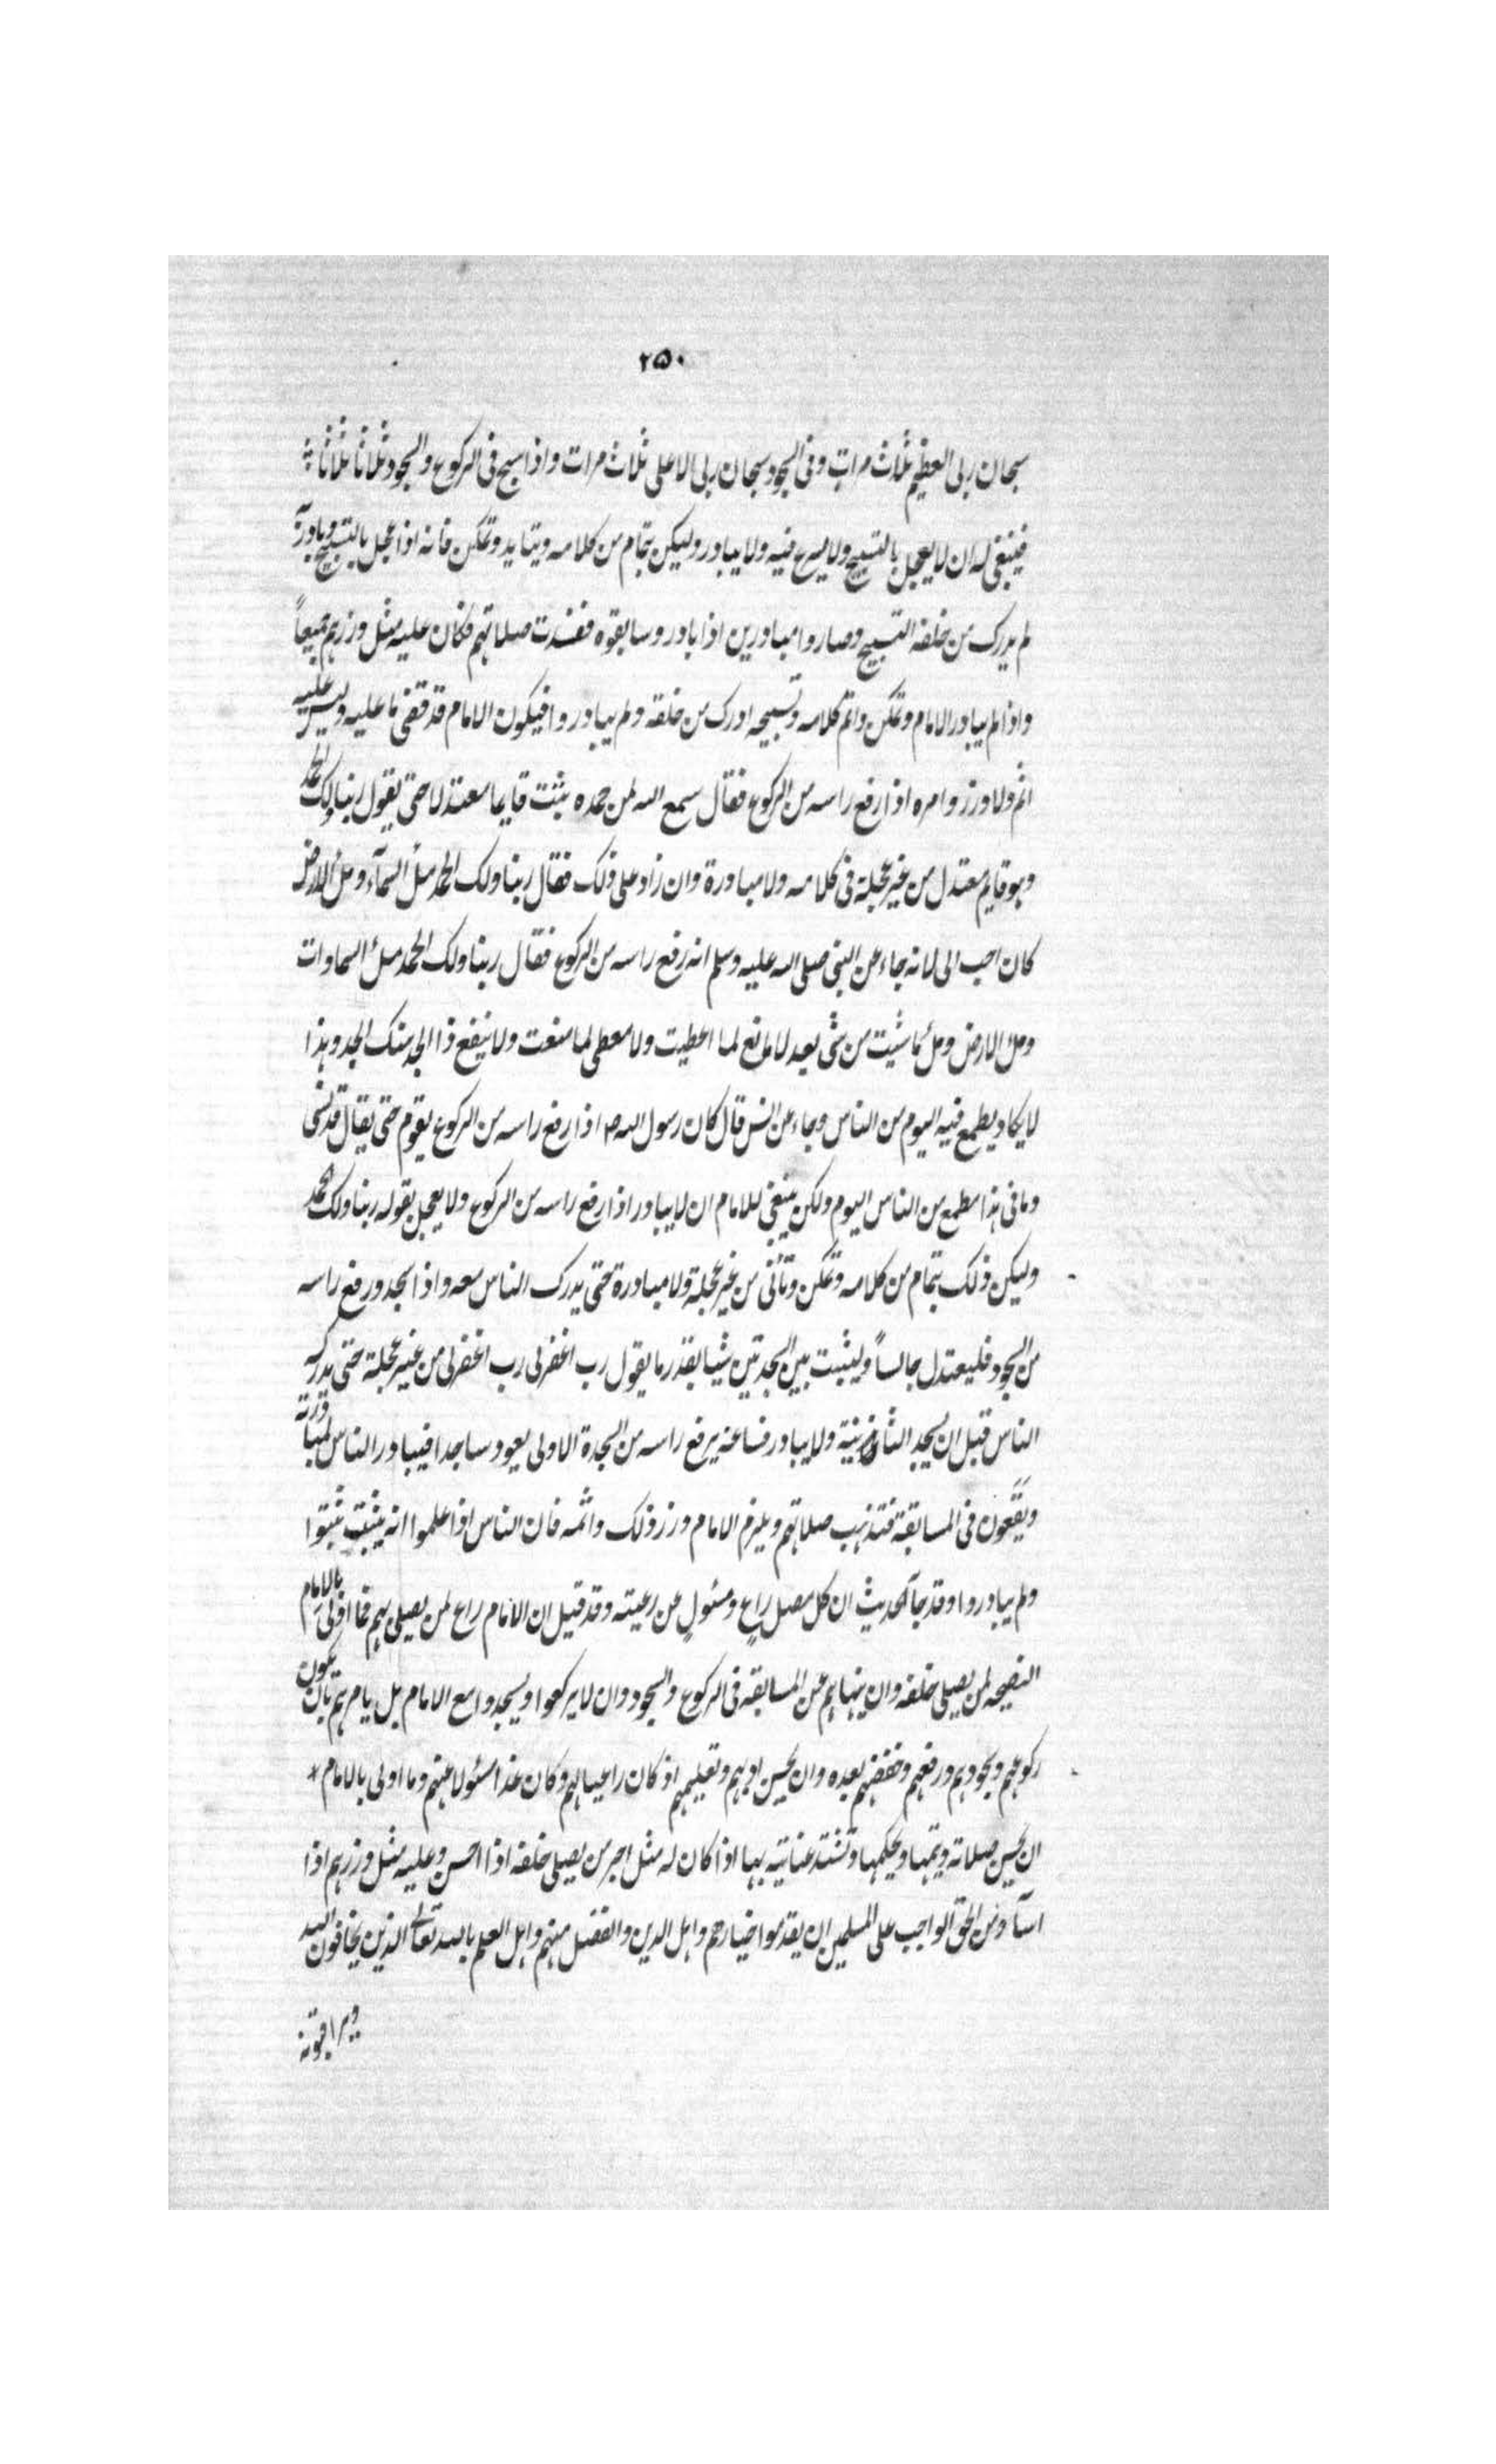 ۲۵۰
سبحان ربى العظيم ثلاث مرات وفى السجود سبحان ربى الاعلى ثلاث مرات واذا سبح فى الركوع والسجود ثلاثا ثلاثا
فينبغى له ان لا يعجل بالتسبيح ولا يسرع فيه ولا يبادر وليكن بتمام من كلامه ويتايد وتمكن فانه اذا عجل بالتسبيح وبادر به
لم يدرك من خلفه التسبيح وصاروا مبادرين اذا بادر وسابقوه ففسدت صلاتهم فكان عليه مثل وزرهم جميعاً
واذا لم يبادر الامام وتمكن واتم كلامه وتسبيحه ادرك من خلفه ولم يبادروا فيكون الامام قد قضى ما عليه وليس عليه
اثم ولا وزر وامره اذا رفع راسه من الركوع فقال سمع الله لمن حمده يثبت قايما معتدلا حتى يقول ربنا ولك الحمد
وهو قايم معتدل من غير عجلة فى كلامه ولا مبادرة وان زاد على ذلك فقال ربنا ولك الحمد ملأ السمآء وملأ الارض
كان احب الى لانه جاء عن النبى صلى الله عليه وسلم انه رفع راسه من الركوع فقال ربنا ولك الحمد ملأ السماوات
وملأ الارض وملأ ما شيت من شى بعد لا مانع لما اعطيت ولا معطى لما منعت ولا ينفع ذا الجد منك الجد وهذا
لا يكاد يطمع فيه اليوم من الناس وجاء عن انس قال كان رسول الله ص اذا رفع راسه من الركوع يقوم حتى يقال قد نسى
وما فى هذا مطمع من الناس اليوم ولكن ينبغى للامام ان لا يبادر اذا رفع راسه من الركوع ولا يعجل بقوله ربنا ولك الحمد
وليكن ذلك بتمام من كلامه وتمكن وتأنى من غير عجلة ولا مبادرة حتى يدرك الناس معه واذا سجد ورفع راسه
من السجود فليعتدل جالساً وليثبت بين السجدتين شيا بقدر ما يقول رب اغفر لى رب اغفر لى من غير عجلة حتى يدركه
الناس قبل ان يسجد الثانية ولا يبادر فساعة يرفع راسه من السجدة الاولى يعود ساجدا فيبادر الناس لمبادرته
ويقعون فى المسابقة فتذهب صلاتهم ويلزم الامام وزر ذلك واثمه فان الناس اذا علموا انه يثبت ثبتوا
ولم يبادروا وقد جآ الحديث ان كل مصل راعٍ ومسئول عن رعيته وقد قيل ان الامام راع لمن يصلى بهم فما اولى بالامام
النصيحه لمن يصلى خلفه وان ينهاهم عن المسابقه فى الركوع والسجود وان لا يركعوا ويسجدوا مع الامام بل يامرهم بان يكون
ركوعهم وسجودهم ورفعهم وخفضهم بعده وان يحسن ادبهم وتعليمهم اذ كان راعيا لهم وكان غدا مسئولا عنهم وما اولى بالامام *
ان يحسن صلاته ويتمها ويحكمها وتشتد عنايته بها اذا كان له مثل اجر من يصلى خلفه اذا احسن وعليه مثل وزرهم اذا
اسآ ومن الحق الواجب على المسلمين ان يقدموا خيارهم واهل الدين والفضل منهم واهل العلم بالله تعالى الذين يخافون الله
ويراقبونه